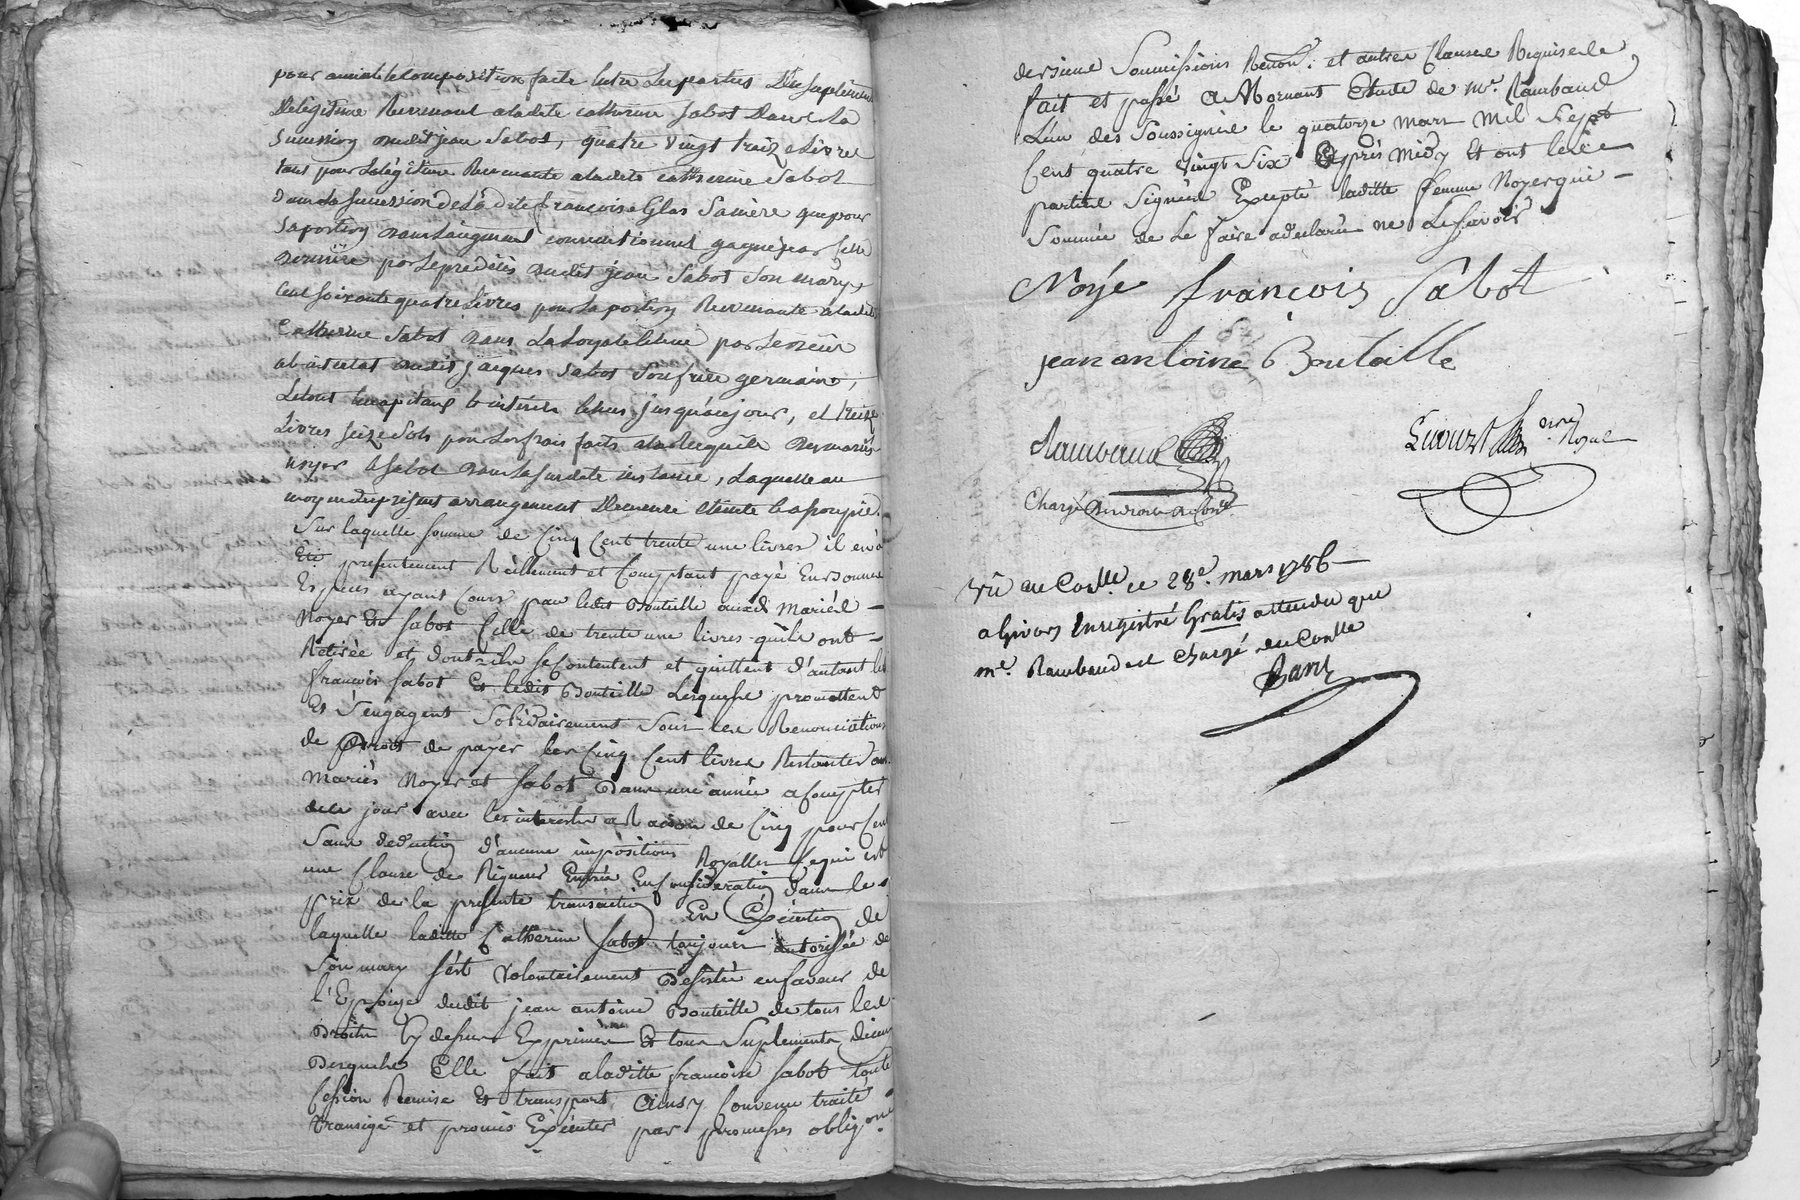 pour amiable composition faite entre les parties du suplément
de légitime Revenant a ladite catherine Sabot dans la
succession dudit jean Sabot, quatre vingt treize Livres
tant pour la légitime Revenante a ladite catherine Sabot
dans la succession de la dite francoise Glas sa mère que pour
sa portion dans laugment conventionnel gagné par cette
dernière par le prédécès dudit jean Sabot son mary,
cent soixante quatre Livres pour la portion Revenante a ladite
Catherine Sabot dans la loyale échue par le décès
ab intestat dudit jacques Sabot son frère germain,
le tout en capitaux et intérêts échus jusqu'à ce jour, et treize
Livres seize sols pour les frais faits a la Requête des mariés
noyer et Sabot dans la susdite instance, laquelle au
moyen du présent arrangement demeure éteinte et assoupie.
Sur laquelle somme de Cinq Cent trente une livres il en a
Eté presentement Réellement et Comptant payé En bonnes
Espèces ayant Cours par ledit Bouteille auxdi mariés
Noyer Et Sabot Celle de trente une livres qu'ils ont
Retirée et dont ils se contentent et quittent d'autant les
francois Sabot Et ledit Bouteille Lesquels promettent
Et S'engagent Solidairement Sous les Renonciations
de Droit de payer les Cinq Cent livres Restantes aux
mariés Noyer et Sabot Dans une année a Compter
de ce jour avec les interests a Raison de Cinq pour Cent
Sans deduction d'aucune impositions Royalles Ce qui est
une Clause de Rigueur Entrée En Consideration dans le
prix de la presente transaction En Exécution de
laquelle laditte Catherine Sabot toujours autorisée de
Son mary s'est volontairement Desistée en faveur de
l'Epouze dudit jean antoine Bouteille de tous les
Droits Cy dessus Exprimés Et tous Suplements d'iceux
Desquels Elle fait a laditte francoise Sabot toute
Cession Remise Et transport Ainsy Convenu traité
transigé et promis Exécuter par promesses oblig.ons
dersieme Soumissions Renon.s et autres Clauses Requises
fait et passé A Mornant Etude de Mr. Rambaud
L'un des Soussignés le quatorze mars mil Sept
Cent quatre vingt Six Après midy Et ont les
parties Signées Excepté laditte femme Noyer qui
Sommée de Le faire a declaré ne Le Savoir
Noyé francois Sabot
jean antoine Bouteille
Rambaud
nre Royal
Chargé du droit de Conlle
Vû au Conlle. ce 28e. mars 1786
a Givors Enregistré Gratis attendu que
me. Rambaud est Chargé du Conlle